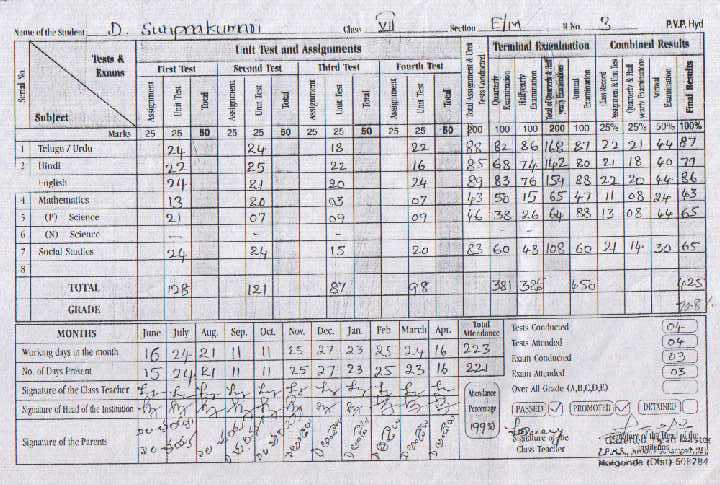 Name of the Student D. Class VII Section E/M R No. 3 P.V.P. Hyd
Serial No. Tests & Exams Subject Unit Test and Assignments Total Assignment & Unit Tests Conducted Terminal Examination Combined Results
First Test Second Test Third Test Fourth Test Quarterly Examination Halfyearly Examination Annual Examination Annual Examination Final Results
Assignment Unit Test Total Assignment Unit Test Total Assignment Unit Test Total Assignment Unit Test Total
Marks 25 25 50 25 25 50 25 25 50 25 25 50 200 100 100 200 100 25% 25% 50% 100%
1 Telugu / Urdu 24 24 18 22 88 82 86 168 87 22 21 44 87
2 Hindi 22 25 22 16 85 68 74 142 80 21 18 40 79
English 24 21 20 24 89 83 76 159 88 22 20 44 86
4 Mathematics 13 20 03 07 43 50 15 65 47 11 08 24 43
5 (P) Science 21 07 09 09 46 38 26 64 88 13 08 44 65
6 (N) Science - - - -
7 Social Studies 24 24 15 20 83 60 48 108 60 21 14 30 65
8
TOTAL 128 121 87 98 381 450 425
GRADE
MONTHS June July Aug. Sep. Oct. Nov. Dec. Jan. Feb March Apr. Total Attendance
Working days in the month 16 24 21 11 11 25 27 23 25 24 16 223
No. of Days Present 15 24 21 11 11 25 27 23 25 23 16 221
Signature of the Class Teacher
Signature of Head of the Institution
Signature of the Parents
Attendance Percentage
Tests Conducted 04
Tests Attended 04
Exam Conducted 03
Exam Attended 03
Over All Grade (A,B,C,D,E)
PASSED ✓ PROMOTED ✓ DETAINED
Signature of the Class Teacher
Signature of the Head of the Institution
Nalgonda (Dist)-508284